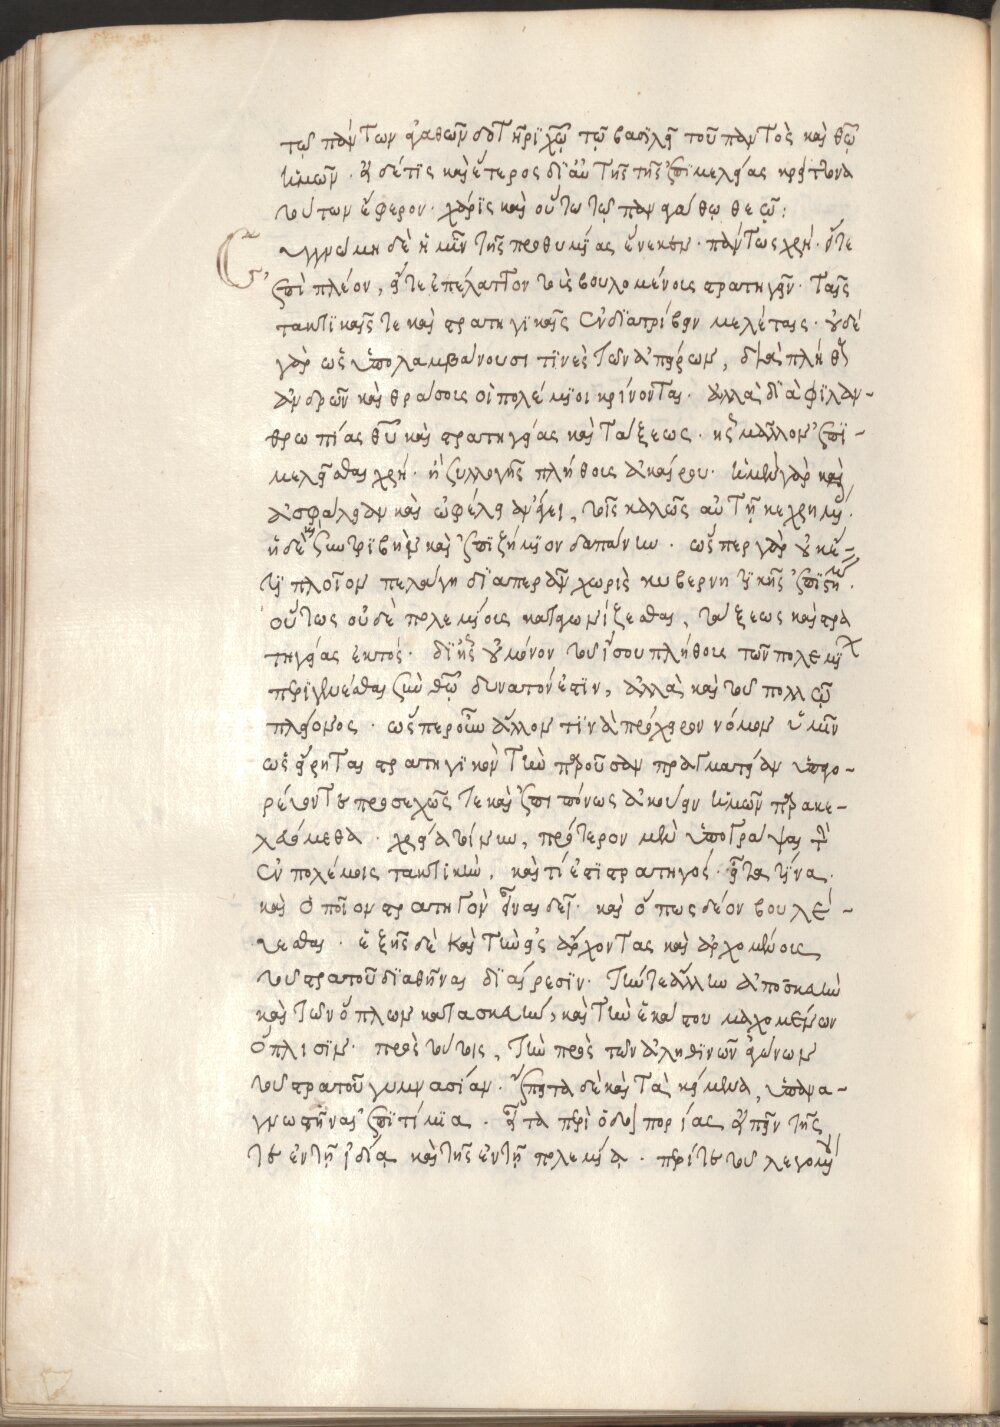 τῶ πάντων ἀγαθῶν σωτῆρι χῶ τῶ βασιλεῖ τοῦ παντὸς καὶ θῶ
ἡμῶν. εἰ δέ τις καὶ ἕτερος δι' αὐτῆς τῆς ἐπιμελείας κρείττονα
τούτων εὕροι. χάρις καὶ οὕτω τῶ παναγάθω θεῶ:
Συγγνώμη δὲ ἡμῖν τῆς προθυμίας ἕνεκεν. πάντως χρή. εἴτε
ἐπὶ πλέον, εἴτε ἐπ' ἔλαττον τοῖς βουλομένοις στρατηγεῖν. ταῖς
τακτικαῖς τε καὶ στρατηγικαῖς ἐνδιατρίβειν μελέταις. οὐδὲ
γὰρ ὡς ὑπολαμβάνουσί τινες τῶν ἀπείρων, διὰ πλήθους
ἀνδρῶν καὶ θράσους οἱ πόλεμοι κρίνονται. ἀλλὰ διὰ φιλαν-
θρωπίας θυ καὶ στρατηγίας καὶ τάξεως. ἧς μᾶλλον ἐπι-
μελεῖσθαι χρή. ἢ συλλογῆς πλήθους ἀκαίρου. ἡ μὲν γὰρ καὶ
ἀσφάλειαν καὶ ὠφέλειαν φέρει, τοῖς καλῶς αὐτῇ κεχρημένοις.
ἡ δὲ συντριβὴν καὶ ἐπιζήμιον δαπάνην. ὥσπερ γὰρ οὐκ ἔ-
στι πλοῖον πελάγη διαπερᾶν χωρὶς κυβερνητικῆς ἐπιστήμης.
οὕτως οὐδὲ πολεμίους καταγωνίζεσθαι, τάξεως καὶ στρα
τηγίας ἐκτός. δι' ἧς οὐ μόνον τοῦ ἴσου πλήθους τῶν πολεμίων
περιγενέσθαι σὺν θῶ δυνατόν ἐστιν, ἀλλὰ καὶ τοῦ πολλῶ
πλείονος. ὥσπερ οὖν ἄλλον τινὰ πρόχειρον νόμον ὑμῖν
ὡς εἴρηται στρατηγικὸν τὴν παροῦσαν πραγματείαν ὑπαγο-
ρεύοντες προσεχῶς τε καὶ ἐπιπόνως ἀκούειν ἡμῶν παρακε-
λευόμεθα. χρεία τοίνυν, πρότερον μὲν ὑπογράψαι τὴν
ἐν πολέμοις τακτικήν, καὶ τί ἐστι στρατηγός. εἶτα τίνα
καὶ ὁποῖον στρατηγὸν εἶναι δεῖ. καὶ ὅπως δέον βουλεύ-
εσθαι. ἑξῆς δὲ καὶ τὴν εἰς ἄρχοντας καὶ ἀρχομένους
τοῦ στρατοῦ διαθεῖναι διαίρεσιν. τήν τε ἄλλην ἀποσκευὴν
καὶ τῶν ὅπλων κατασκευήν, καὶ τὴν ἑκάστου μαχομένων
ὅπλισιν. πρὸς τούτοις, τὴν πρὸς τῶν ἀληθινῶν ἀγώνων
τοῦ στρατοῦ γυμνασίαν. ἔπειτα δὲ καὶ τὰ κείμενα, ὑπανα-
γνωσθῆναι ἐπιτίμια. εἶτα περὶ ὁδοιπορίας εἰπεῖν τῆς
τε ἐν τῇ ἰδίᾳ καὶ τῆς ἐν τῇ πολεμίᾳ. περί τε τοῦ λεγομένου